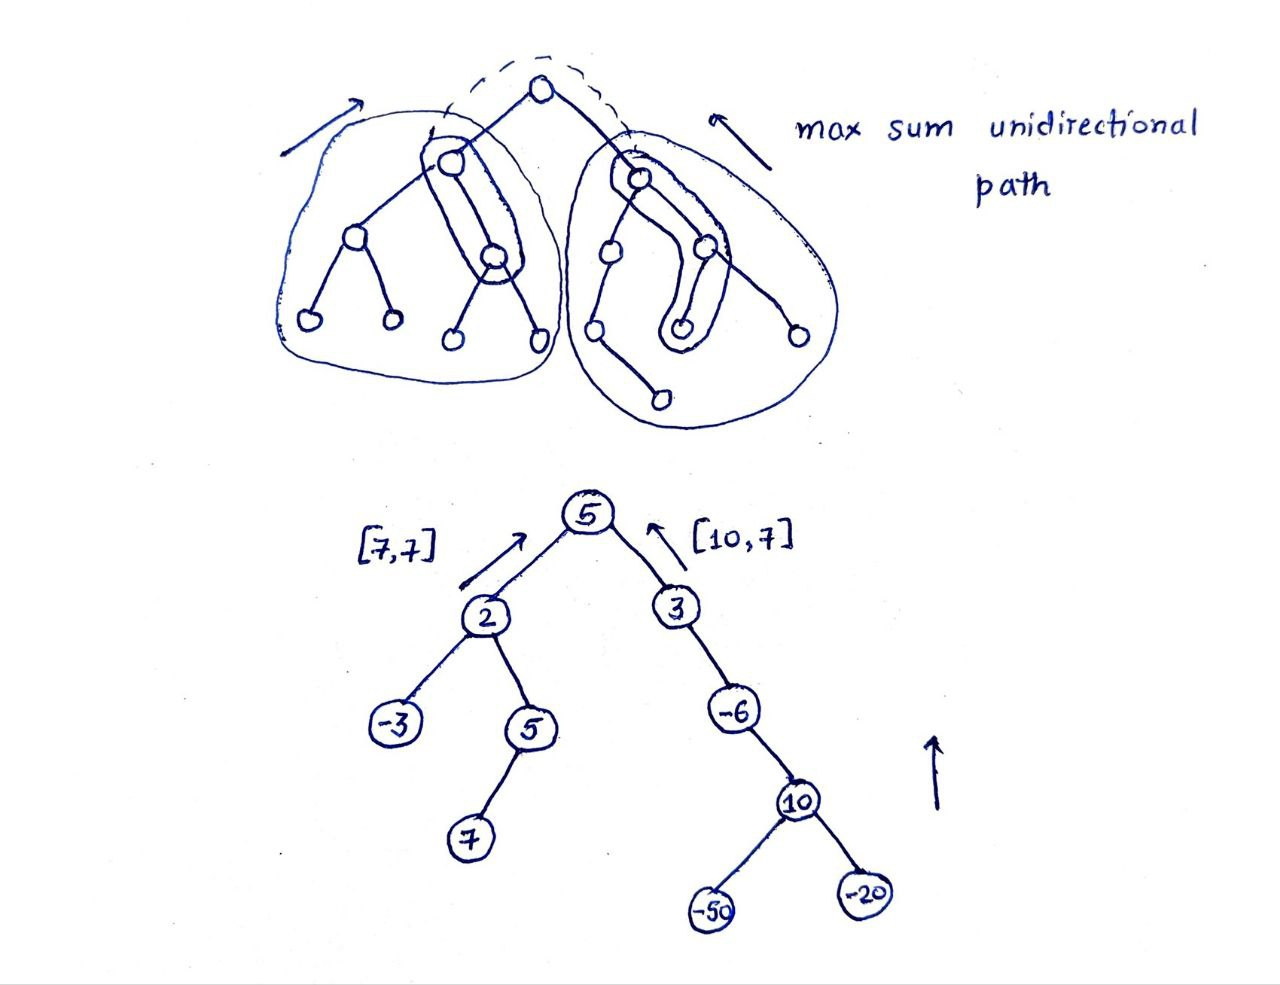 max sum unidirectional
path
5
[7,7]
[10,7]
2
3
-3
5
-6
7
10
-50
-20